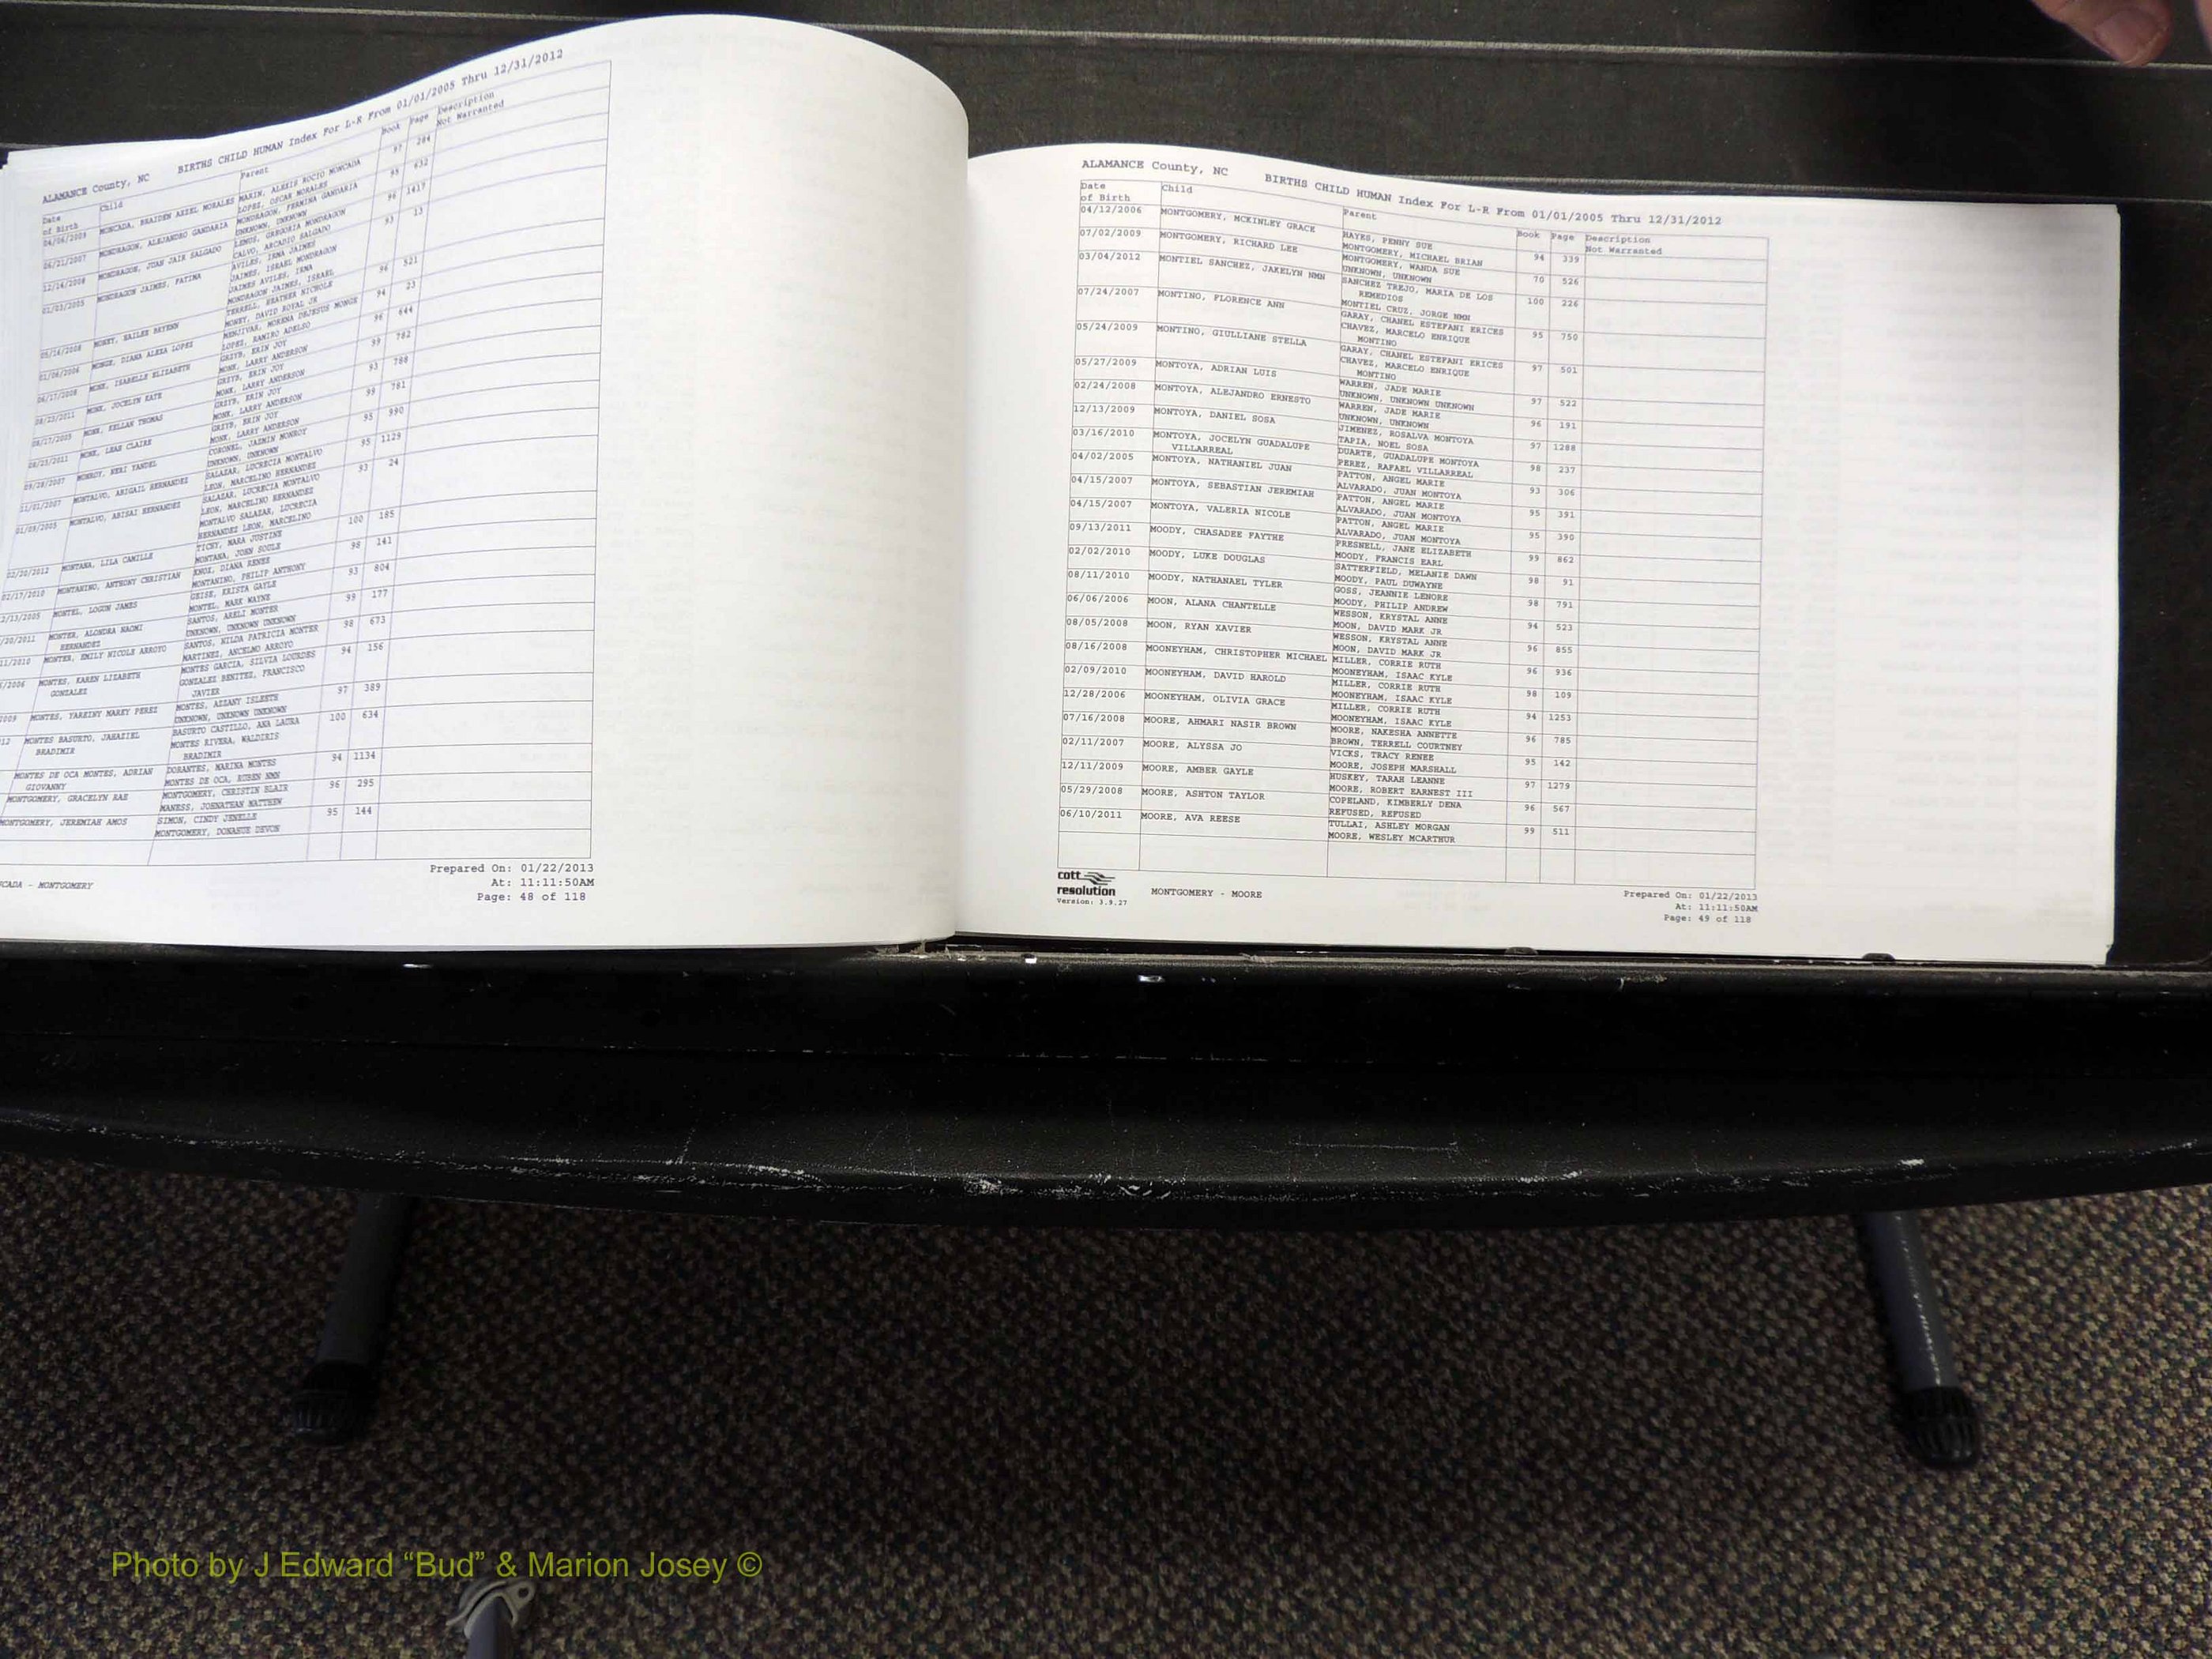 ALAMANCE County, NC BIRTHS CHILD HUMAN Index For L-R From 01/01/2005 Thru 12/31/2012
Date of Birth Child Parent Book Page Description
Not Warranted
04/06/2009 MONCADA, BRAIDEN AXIEL MORALES MARIN, ALEXIS ROCIO MONCADA 97 284
LOPEZ, OSCAR MORALES
06/21/2007 MONDRAGON, ALEJANDRO GANDARIA MONDRAGON, FERMINA GANDARIA 95 632
UNKNOWN, UNKNOWN
12/14/2008 MONDRAGON, JUAN JAIR SALGADO LEMUS, GREGORIA MONDRAGON 96 1417
CALVO, ARCADIO SALGADO
01/03/2005 MONDRAGON JAIMES, FATIMA AVILES, IRMA JAIMES 93 13
JAIMES, ISRAEL MONDRAGON
JAIMES AVILES, IRMA
MONDRAGON JAIMES, ISRAEL
05/14/2008 MONEY, BAILEE BRYENN TERRELL, HEATHER NICHOLE 96 521
MONEY, DAVID ROYAL JR
01/06/2006 MONGE, DIANA ALEXA LOPEZ MENJIVAR, MORENA DEJESUS MONGE 94 23
LOPEZ, RAMIRO ADELSO
06/17/2008 MONK, ISABELLE ELIZABETH GREYB, ERIN JOY 96 644
MONK, LARRY ANDERSON
08/23/2011 MONK, JOCELYN KATE GREYB, ERIN JOY 99 782
MONK, LARRY ANDERSON
08/17/2005 MONK, KELLAN THOMAS GREYB, ERIN JOY 93 788
MONK, LARRY ANDERSON
08/23/2011 MONK, LEAH CLAIRE GREYB, ERIN JOY 99 781
MONK, LARRY ANDERSON
09/28/2007 MONROY, NERI YANDEL CORONEL, JAZMIN MONROY 95 990
UNKNOWN, UNKNOWN
11/01/2007 MONTALVO, ABIGAIL HERNANDEZ SALAZAR, LUCRECIA MONTALVO 95 1129
LEON, MARCELINO HERNANDEZ
01/09/2005 MONTALVO, ABISAI HERNANDEZ SALAZAR, LUCRECIA MONTALVO 93 24
LEON, MARCELINO HERNANDEZ
MONTALVO SALAZAR, LUCRECIA
HERNANDEZ LEON, MARCELINO
02/20/2012 MONTANA, LILA CAMILLE TICHY, MARA JUSTINE 100 185
MONTANA, JOHN SOULE
02/17/2010 MONTANINO, ANTHONY CHRISTIAN KNOX, DIANA RENEE 98 141
MONTANINO, PHILIP ANTHONY
2/13/2005 MONTEL, LOGUN JAMES GEISE, KRISTA GAYLE 93 804
MONTEL, MARK WAYNE
/20/2011 MONTER, ALONDRA NAOMI HERNANDEZ SANTOS, ARELI MONTER 99 177
UNKNOWN, UNKNOWN UNKNOWN
11/2010 MONTER, EMILY NICOLE ARROYO SANTOS, HILDA PATRICIA MONTER 98 673
MARTINEZ, ANCELMO ARROYO
/2006 MONTES, KAREN LIZABETH GONZALEZ MONTES GARCIA, SILVIA LOURDES 94 156
GONZALEZ BENITEZ, FRANCISCO JAVIER
009 MONTES, YAREINY MAREY PEREZ MONTES, AZZANY ISLEETH 97 389
UNKNOWN, UNKNOWN UNKNOWN
12 MONTES BASURTO, JAHAZIEL BRADIMIR BASURTO CASTILLO, ANA LAURA 100 634
MONTES RIVERA, WALDIRIS BRADIMIR
MONTES DE OCA MONTES, ADRIAN GIOVANNY DORANTES, MARINA MONTES 94 1134
MONTES DE OCA, RUBEN NMN
MONTGOMERY, GRACELYN RAE MONTGOMERY, CHRISTIN BLAIR 96 295
MANESS, JOHNATHAN MATTHEW
MONTGOMERY, JEREMIAH AMOS SIMON, CINDY JENELLE 95 144
MONTGOMERY, DONANUE DEVON
CADA - MONTGOMERY
Prepared On: 01/22/2013
At: 11:11:50AM
Page: 48 of 118
ALAMANCE County, NC BIRTHS CHILD HUMAN Index For L-R From 01/01/2005 Thru 12/31/2012
Date of Birth Child Parent Book Page Description
Not Warranted
04/12/2006 MONTGOMERY, MCKINLEY GRACE HAYES, PENNY SUE 94 339
MONTGOMERY, MICHAEL BRIAN
07/02/2009 MONTGOMERY, RICHARD LEE MONTGOMERY, WANDA SUE 70 526
UNKNOWN, UNKNOWN
03/04/2012 MONTIEL SANCHEZ, JAKELYN NMN SANCHEZ TREJO, MARIA DE LOS REMEDIOS 100 226
MONTIEL CRUZ, JORGE NMN
07/24/2007 MONTINO, FLORENCE ANN GARAY, CHANEL ESTEFANI ERICES 95 750
CHAVEZ, MARCELO ENRIQUE MONTINO
05/24/2009 MONTINO, GIULLIANE STELLA GARAY, CHANEL ESTEFANI ERICES 97 501
CHAVEZ, MARCELO ENRIQUE MONTINO
05/27/2009 MONTOYA, ADRIAN LUIS WARREN, JADE MARIE 97 522
UNKNOWN, UNKNOWN UNKNOWN
02/24/2008 MONTOYA, ALEJANDRO ERNESTO WARREN, JADE MARIE 96 191
UNKNOWN, UNKNOWN
12/13/2009 MONTOYA, DANIEL SOSA JIMENEZ, ROSALVA MONTOYA 97 1288
TAPIA, NOEL SOSA
03/16/2010 MONTOYA, JOCELYN GUADALUPE VILLARREAL DUARTE, GUADALUPE MONTOYA 98 237
PEREZ, RAFAEL VILLARREAL
04/02/2005 MONTOYA, NATHANIEL JUAN PATTON, ANGEL MARIE 93 306
ALVARADO, JUAN MONTOYA
04/15/2007 MONTOYA, SEBASTIAN JEREMIAH PATTON, ANGEL MARIE 95 391
ALVARADO, JUAN MONTOYA
04/15/2007 MONTOYA, VALERIA NICOLE PATTON, ANGEL MARIE 95 390
ALVARADO, JUAN MONTOYA
09/13/2011 MOODY, CHASADEE FAYTHE PRESNELL, JANE ELIZABETH 99 862
MOODY, FRANCIS EARL
02/02/2010 MOODY, LUKE DOUGLAS SATTERFIELD, MELANIE DAWN 98 91
MOODY, PAUL DUWAYNE
08/11/2010 MOODY, NATHANAEL TYLER GOSS, JEANNIE LENORE 98 791
MOODY, PHILIP ANDREW
06/06/2006 MOON, ALANA CHANTELLE WESSON, KRYSTAL ANNE 94 523
MOON, DAVID MARK JR
08/05/2008 MOON, RYAN XAVIER WESSON, KRYSTAL ANNE 96 855
MOON, DAVID MARK JR
08/16/2008 MOONEYHAM, CHRISTOPHER MICHAEL MILLER, CORRIE RUTH 96 936
MOONEYHAM, ISAAC KYLE
02/09/2010 MOONEYHAM, DAVID HAROLD MILLER, CORRIE RUTH 98 109
MOONEYHAM, ISAAC KYLE
12/28/2006 MOONEYHAM, OLIVIA GRACE MILLER, CORRIE RUTH 94 1253
MOONEYHAM, ISAAC KYLE
07/16/2008 MOORE, AHMARI NASIR BROWN MOORE, NAKESHA ANNETTE 96 785
BROWN, TERRELL COURTNEY
02/11/2007 MOORE, ALYSSA JO VICKS, TRACY RENEE 95 142
MOORE, JOSEPH MARSHALL
12/11/2009 MOORE, AMBER GAYLE HUSKEY, TARAH LEANNE 97 1279
MOORE, ROBERT EARNEST III
05/29/2008 MOORE, ASHTON TAYLOR COPELAND, KIMBERLY DENA 96 567
REFUSED, REFUSED
06/10/2011 MOORE, AVA REESE TULLAI, ASHLEY MORGAN 99 511
MOORE, WESLEY MCARTHUR
cott
resolution
Version: 3.9.27
MONTGOMERY - MOORE
Prepared On: 01/22/2013
At: 11:11:50AM
Page: 49 of 118
Photo by J Edward “Bud” & Marion Josey ©